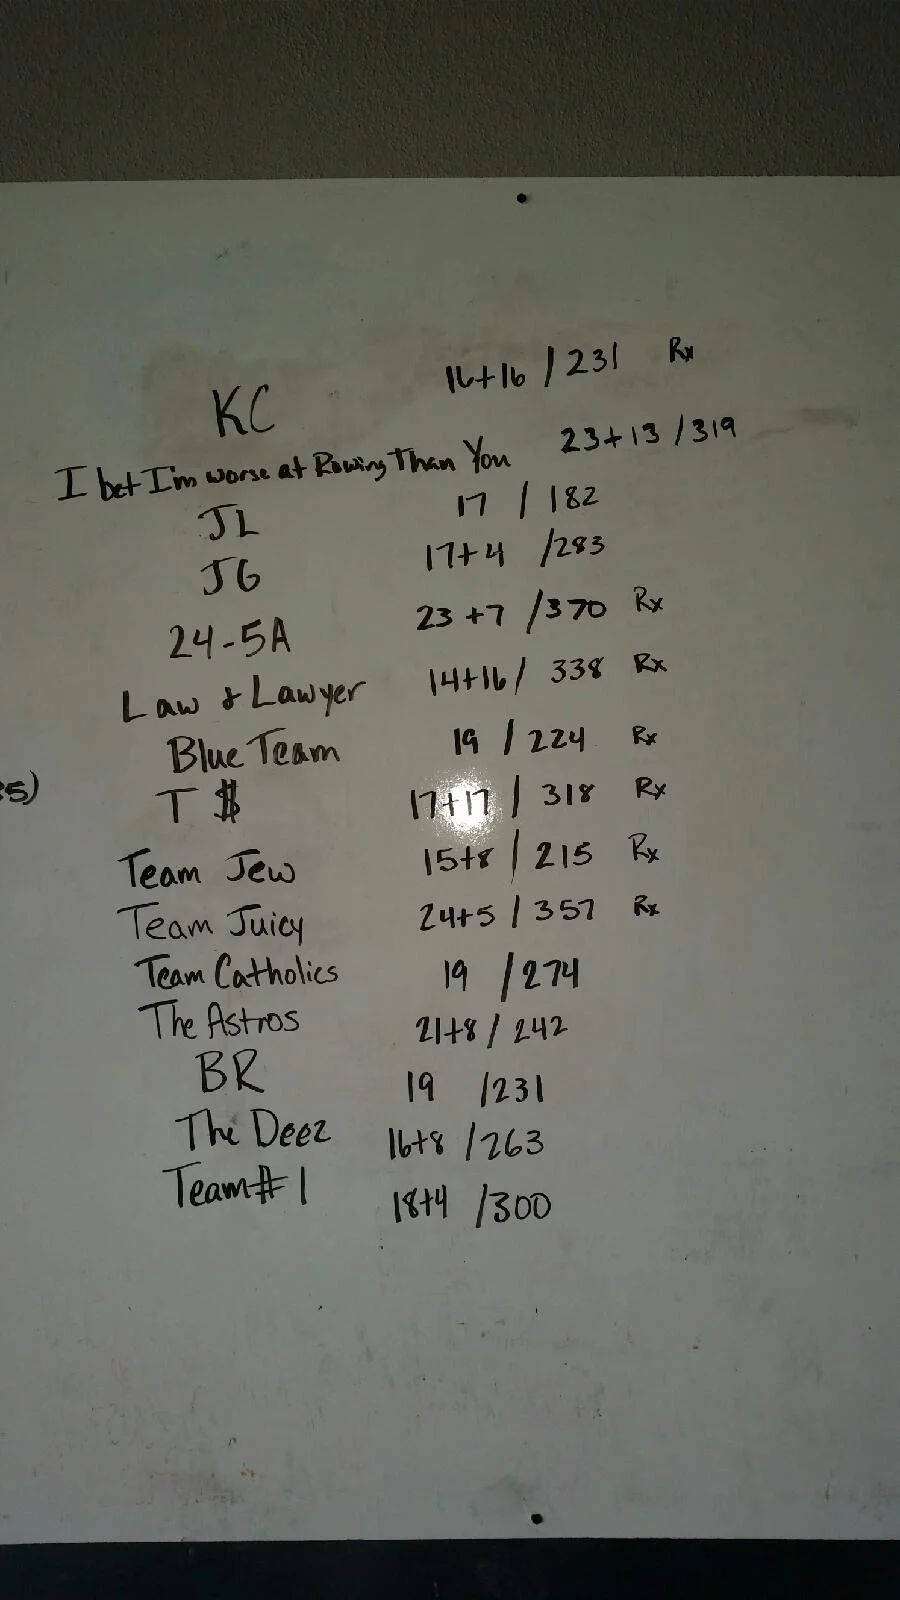 KC 16+16 / 231 Rx
I bet I'm worse at Rowing Than You 23+13 / 319
JL 17 / 182
JG 17+4 / 283
24-5A 23+7 / 370 Rx
Law & Lawyer 14+16 / 338 Rx
Blue Team 19 / 224 Rx
5) T $ 17+17 / 318 Rx
Team Jew 15+8 / 215 Rx
Team Juicy 24+5 / 357 Rx
Team Catholics 19 / 274
The Astros 21+8 / 242
BR 19 / 231
The Deez 16+8 / 263
Team #1 18+4 / 300